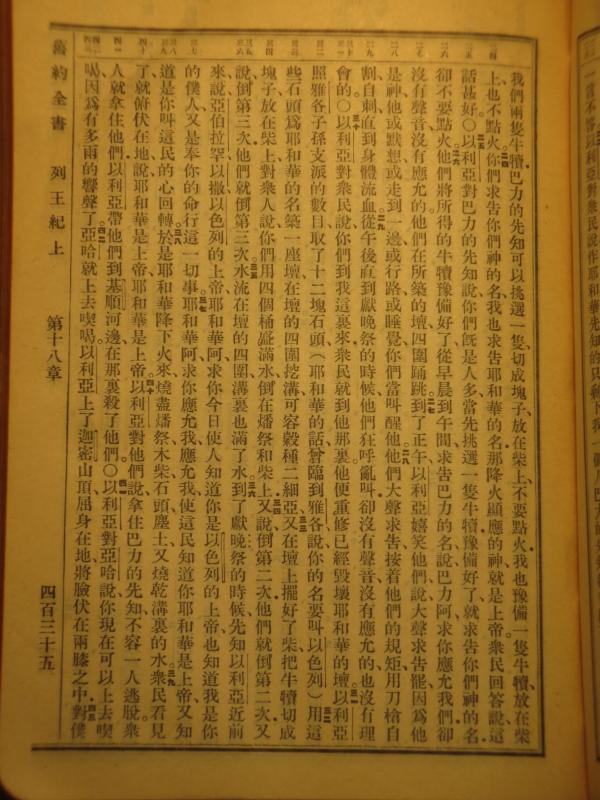 我們兩隻牛犢巴力的先知可以挑選一隻切成塊子放在柴上不要點火我也豫備一隻牛犢放在柴
上也不點火你們求告你們神的名我也求告耶和華的名那降火顯應的神就是上帝衆民回答說這
話甚好○以利亞對巴力的先知說你們旣是人多當先挑選一隻牛犢豫備好了就求告你們神的名
卻不要點火他們將所得的牛犢豫備好了從早晨到午間求告巴力的名說巴力阿求你應允我們卻
沒有聲音沒有應允的他們在所築的壇四圍踊跳到了正午以利亞嬉笑他們說大聲求告罷因爲他
是神他或默想或走到一邊或行路或睡覺你們當叫醒他他們大聲求告按着他們的規矩用刀槍自
割自刺直到身體流血從午後直到獻晚祭的時候他們狂呼亂叫卻沒有聲音沒有應允的也沒有理
會的○以利亞對衆民說你們到我這裏來衆民就到他那裏他便重修已經毀壞耶和華的壇以利亞
照雅各子孫支派的數目取了十二塊石頭（耶和華的話曾臨到雅各說你的名要叫以色列）用這
些石頭爲耶和華的名築一座壇在壇的四圍挖溝可容穀種二細亞又在壇上擺好了柴把牛犢切成
塊子放在柴上對衆人說你們用四個桶盛滿水倒在燔祭和柴上又說倒第二次他們就倒第二次又
說倒第三次他們就倒第三次水流在壇的四圍溝裏也滿了水到了獻晚祭的時候先知以利亞近前
來說亞伯拉罕以撒以色列的上帝耶和華阿求你今日使人知道你是以色列的上帝也知道我是你
的僕人又是奉你的命行這一切事耶和華阿求你應允我應允我使這民知道你耶和華是上帝又知
道是你叫這民的心回轉於是耶和華降下火來燒盡燔祭木柴石頭塵土又燒乾溝裏的水衆民看見
了就俯伏在地說耶和華是上帝耶和華是上帝以利亞對他們說拿住巴力的先知不容一人逃脫衆
人就拿住他們以利亞帶他們到基順河邊在那裏殺了他們○以利亞對亞哈說你現在可以上去喫
喝因爲有多雨的響聲了亞哈就上去喫喝以利亞上了迦密山頂屈身在地將臉伏在兩膝之中對僕
舊約全書　列王紀上　第十八章　四百三十五